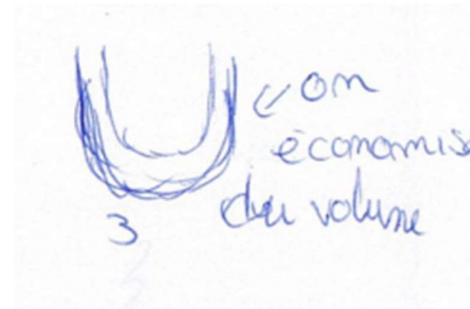 on
économise
du volume
3